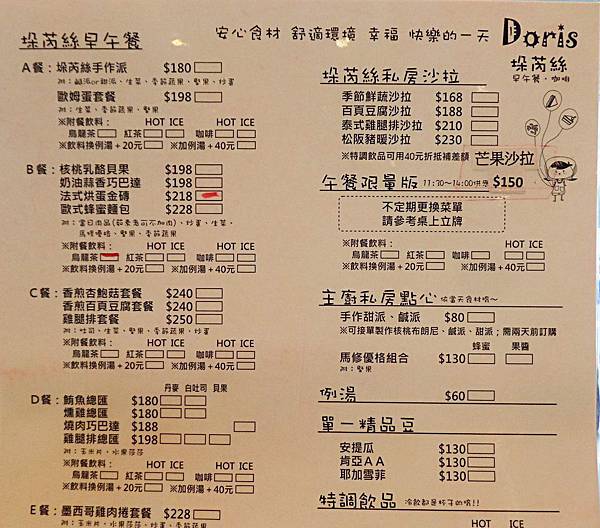 安心食材 舒適環境 幸福 快樂的一天
Doris
垛芮絲
早午餐·咖啡
垛芮絲早午餐
A餐：垛芮絲手作派 $180
附：鹹派or甜派、生菜、季節蔬果、堅果、炒蛋
歐姆蛋套餐 $198
附：生菜、季節蔬果、堅果
※附餐飲料： HOT ICE HOT ICE
烏龍茶 紅茶 咖啡
※飲料換例湯＋20元 ※加例湯＋40元
B餐：核桃乳酪貝果 $198
奶油蒜香巧巴達 $198
法式烘蛋金磚 $218
歐式蜂蜜麵包 $228
馬修優格、堅果、季節蔬果
※附餐飲料： HOT ICE HOT ICE
烏龍茶 紅茶 咖啡
※飲料換例湯＋20元 ※加例湯＋40元
C餐：香煎杏鮑菇套餐 $240
香煎百頁豆腐套餐 $240
雞腿排套餐 $250
附：吐司、生菜、堅果、季節蔬果、炒蛋
※附餐飲料： HOT ICE HOT ICE
烏龍茶 紅茶 咖啡
※飲料換例湯＋20元 ※加例湯＋40元
丹麥 白吐司 貝果
D餐：鮪魚總匯 $180
燻雞總匯 $180
燒肉巧巴達 $188
雞腿排總匯 $198
附：玉米片、水果莎莎
※附餐飲料： HOT ICE HOT ICE
烏龍茶 紅茶 咖啡
※飲料換例湯＋20元 ※加例湯＋40元
E餐：墨西哥雞肉捲套餐 $228
附：玉米片、水果莎莎、炒蛋、季節蔬果
垛芮絲私房沙拉
季節鮮蔬沙拉 $168
百頁豆腐沙拉 $188
泰式雞腿排沙拉 $210
松阪豬暖沙拉 $230
※特調飲品可用40元折抵補差額
芒果沙拉
$150
午餐限量版 11:30~14:00供應
不定期更換菜單
請參考桌上立牌
※附餐飲料： HOT ICE HOT ICE
烏龍茶 紅茶 咖啡
※飲料換例湯＋20元 ※加例湯＋40元
主廚私房點心 依當天食材唷~
手作甜派、鹹派 $80
※可接單製作核桃布朗尼、鹹派、甜派；需兩天前訂購
蜂蜜 果醬
馬修優格組合 $130
附：堅果
例湯 $60
單一精品豆
安提瓜 $130
肯亞AA $130
耶加雪菲 $130
特調飲品 冷飲都是杯子的唷!!
HOT ICE